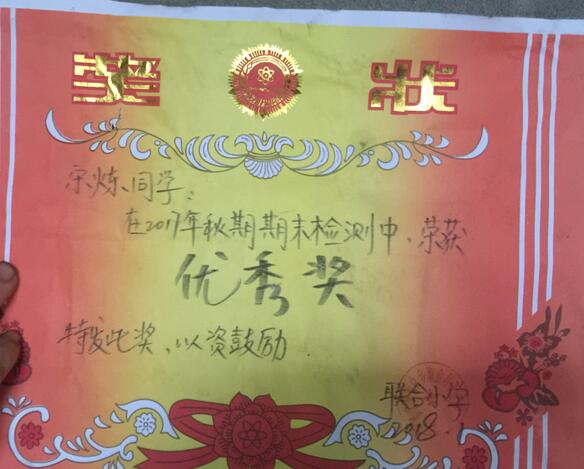 奖状
宗炼同学：
在2017年秋期期末检测中、荣获
优秀奖
特发此奖、以资鼓励
联合小学
2018.1